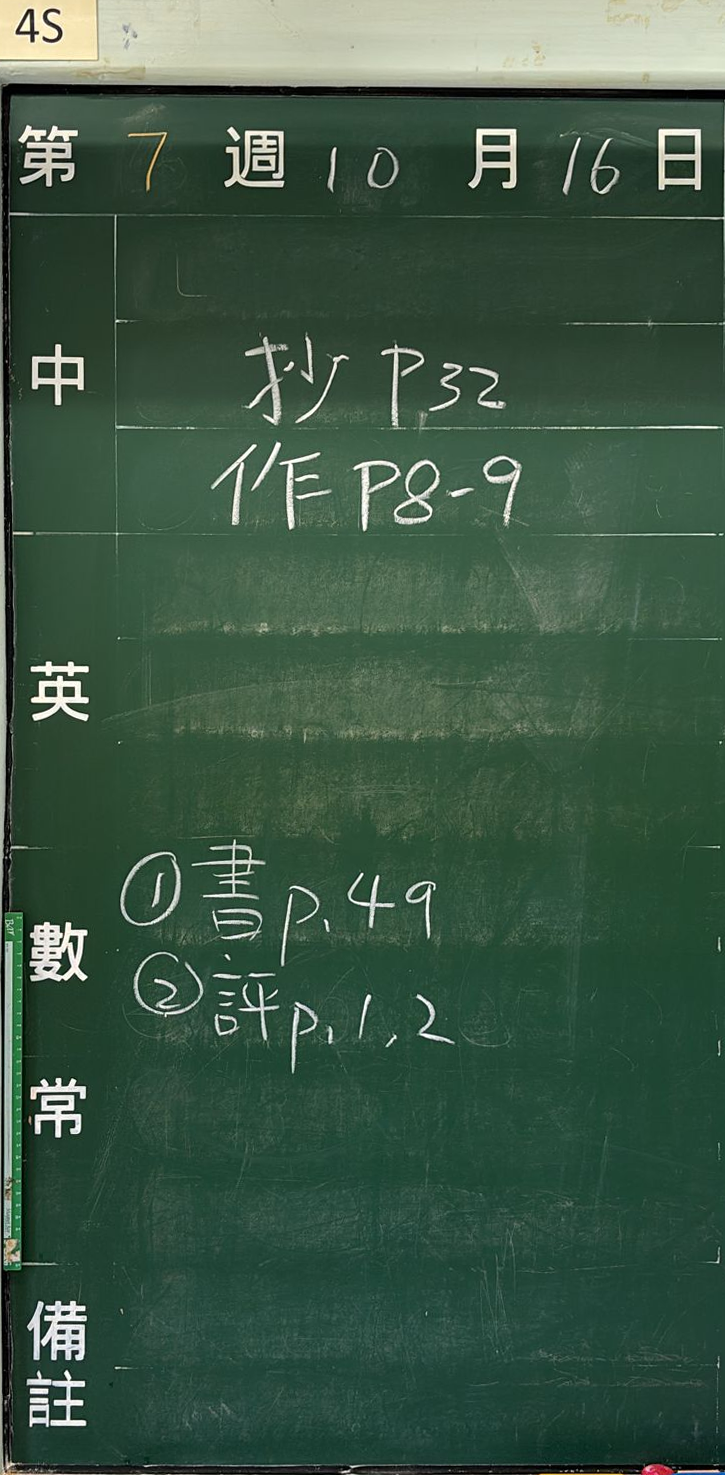 4S
第 7 週 10 月 16 日
中
抄 P.32
作 P8-9
英
數
① 書 p.49
② 評 p.1,2
常
備註